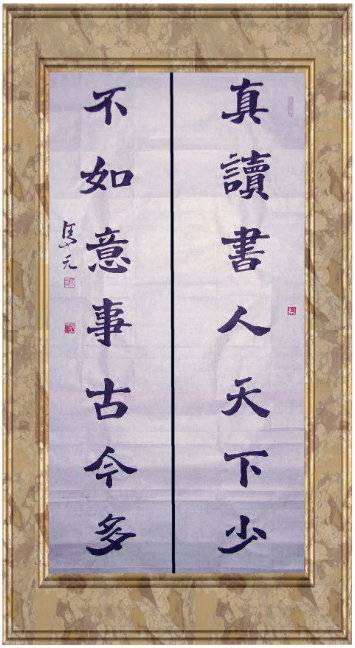 真讀書人天下少
不如意事古今多